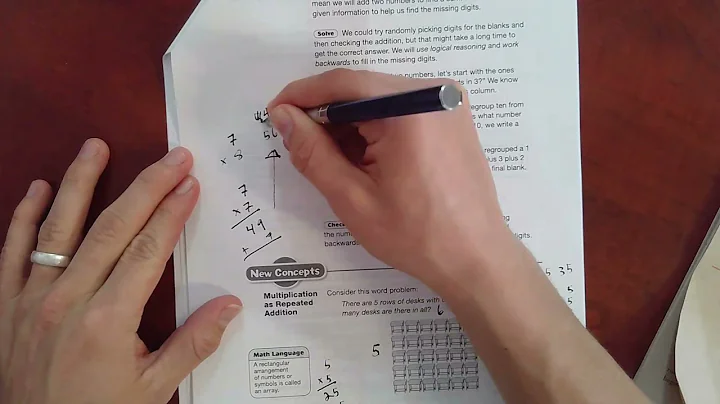 mean we will add two numbers to find a
given information to help us find the missing digits.
Solve We could try randomly picking digits for the blanks and
then checking the addition, but that might take a long time to
get the correct answer. We will use logical reasoning and work
backwards to fill in the missing digits.
numbers, let's start with the ones
in 3?" We know
column.
regroup ten from
s what number
0, we write a
regrouped a 1
plus 3 plus 2
final blank.
7
x 8
56
7
x 7
49
+
Check
the num
digits.
backward
New Concepts
Multiplication
as Repeated
Addition
Consider this word problem:
There are 5 rows of desks with
many desks are there in all? 6
5 35
5
5
5
Math Language
A rectangular
arrangement
of numbers or
symbols is called
an array.
5
x 5
25